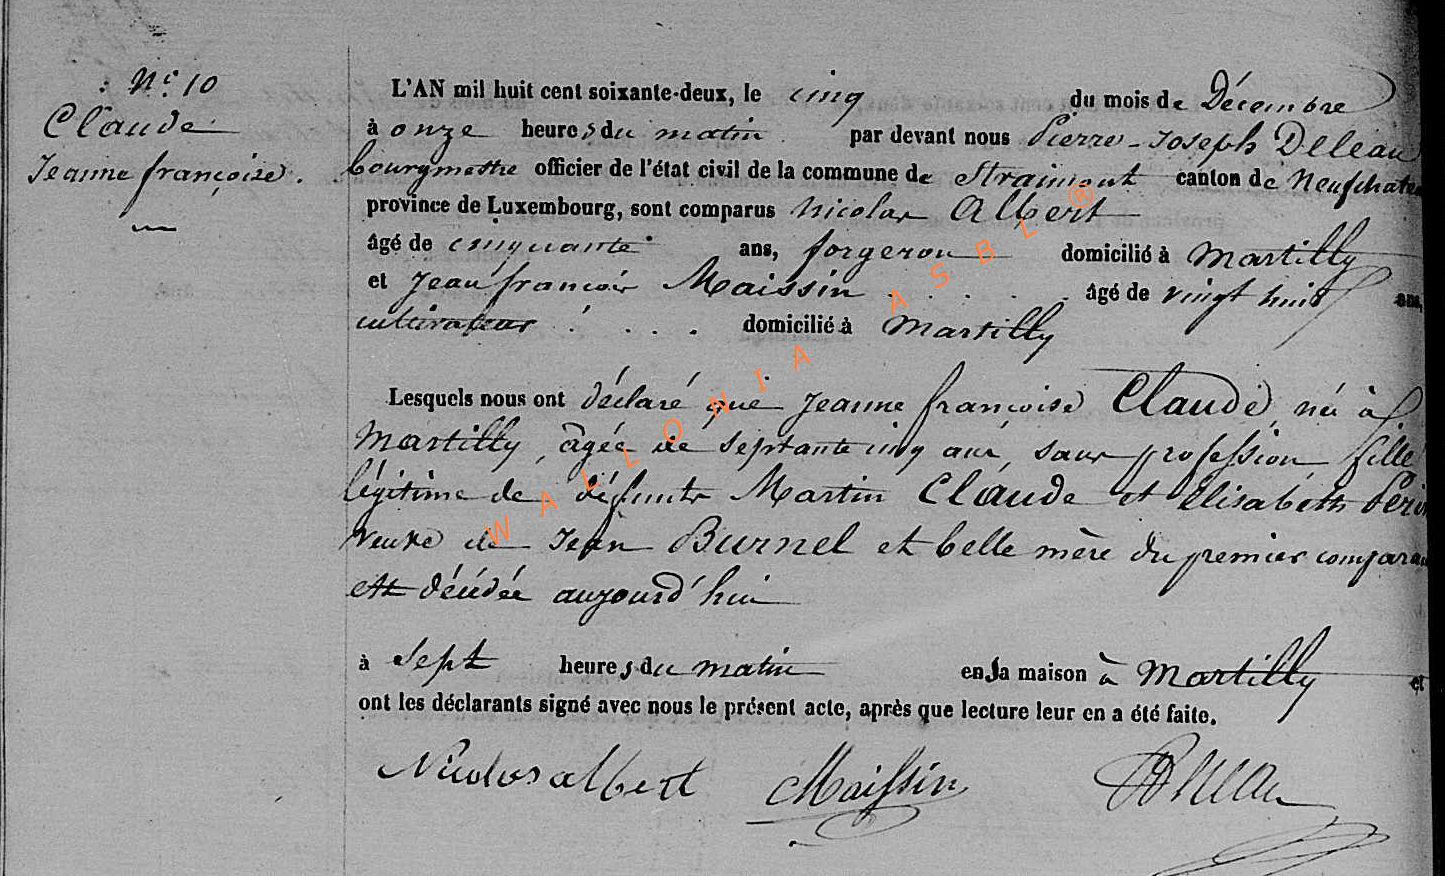 N.° 10
Claude
Jeanne françoise.
L'AN mil huit cent soixante-deux, le cinq du mois de Décembre
à onze heures du matin par devant nous Pierre-Joseph Deleau
bourgmestre officier de l'état civil de la commune de Straimont canton de Neufchateau
province de Luxembourg, sont comparus Nicolas Albert
âgé de cinquante ans, forgeron domicilié à Martilly
et Jean françois Maissin . . . . âgé de vingt huit ans,
cultivateur . . . . domicilié à Martilly
Lesquels nous ont déclaré que Jeanne françoise Claude, née à
Martilly, âgée de septante cinq ans, sans profession fille
légitime de défunts Martin Claude et Elisabeth
veuve de Jean Burnel et belle mère du premier comparant
est décédée aujourd'hui
à sept heures du matin en sa maison à Martilly et
ont les déclarants signé avec nous le présent acte, après que lecture leur en a été faite.
Nicolas albert Maissin Deleau
WALLONIA ASBL ®